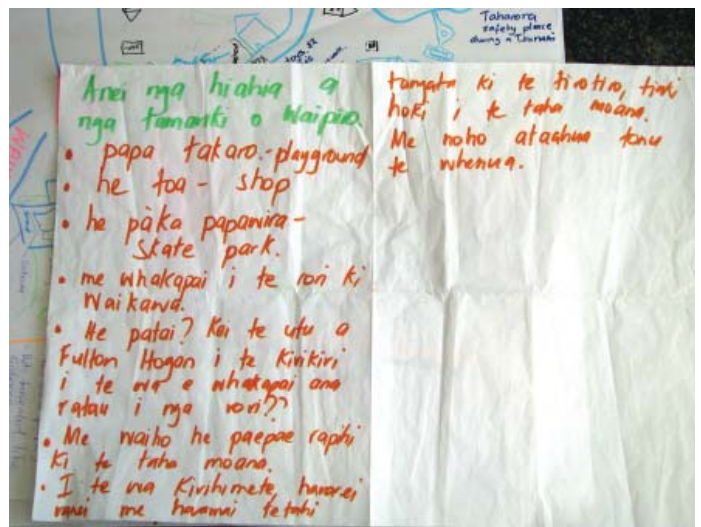 Tahavora
safety place
during a Tsunami
Anei nga hiahia a
nga tamariki o Waipiro.
• papa takaro - playground
• he toa - shop
• he pāka papawira -
skate park.
• me whakapai i te rori ki
Waikawa.
• He patai? Kei te utu a
Fulton Hogan i te Kirikiri
i te wa e whakapai ana
ratau i nga rori??
• Me waiho he paepae rapihi
ki te taha moana.
• I te wa Kirihimete, hararei
ranei me haramai tetahi
tangata ki te tirotiro, tiaki
hoki i te taha moana.
Me noho ataahua tonu
te whenua.